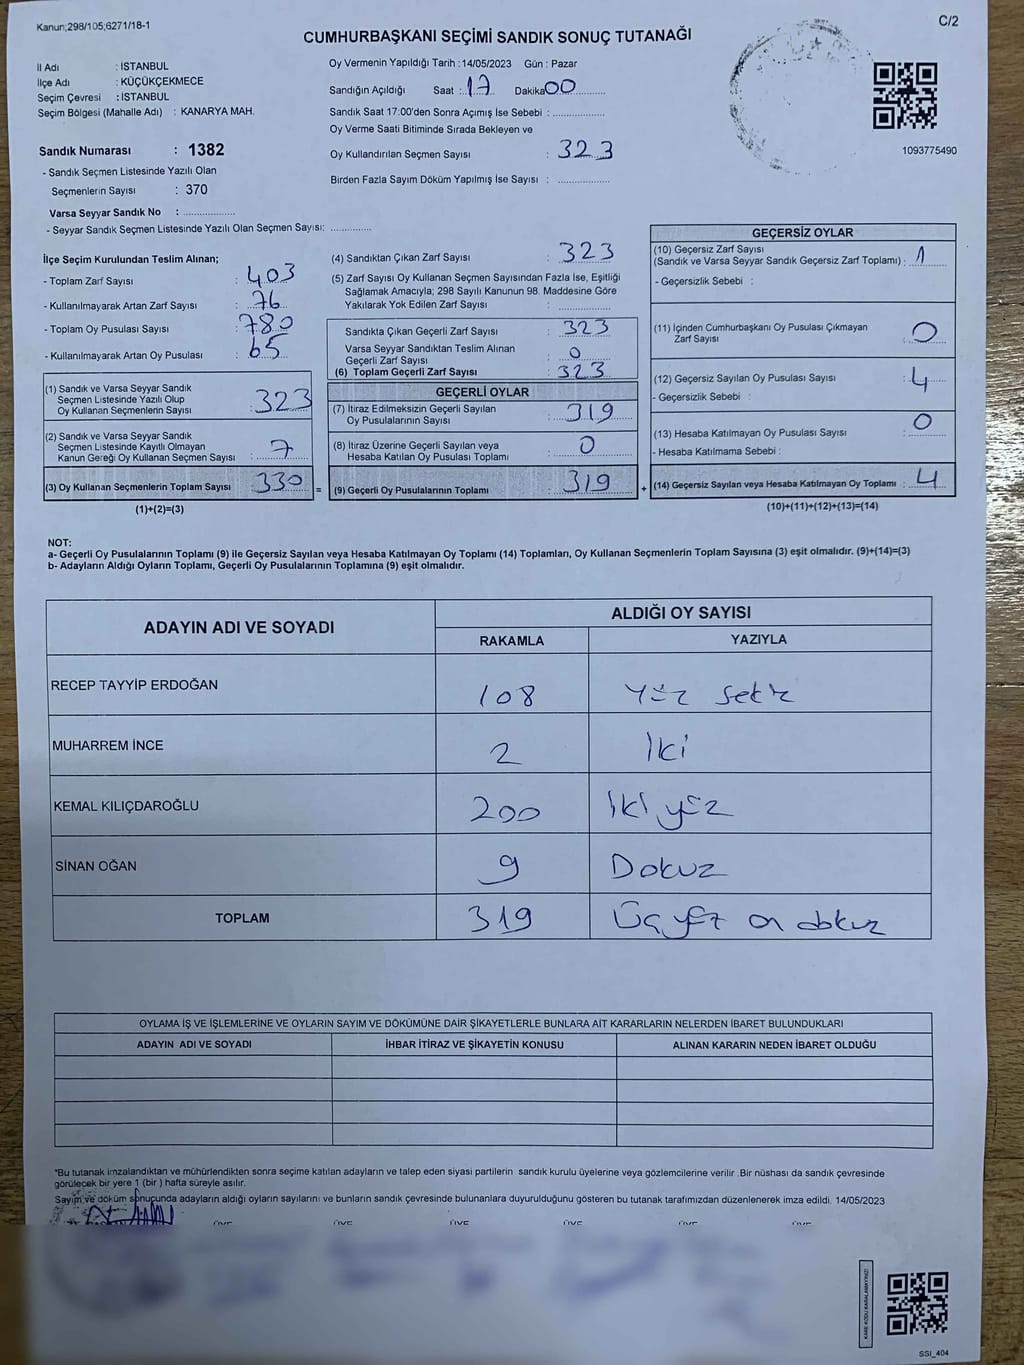 Kanun;298/105;6271/18-1
C/2
CUMHURBAŞKANI SEÇİMİ SANDIK SONUÇ TUTANAĞI
İl Adı : İSTANBUL
İlçe Adı : KÜÇÜKÇEKMECE
Seçim Çevresi : İSTANBUL
Seçim Bölgesi (Mahalle Adı) : KANARYA MAH.
Sandık Numarası : 1382
- Sandık Seçmen Listesinde Yazılı Olan
Seçmenlerin Sayısı : 370
Varsa Seyyar Sandık No : ..................
- Seyyar Sandık Seçmen Listesinde Yazılı Olan Seçmen Sayısı: ..............
Oy Vermenin Yapıldığı Tarih : 14/05/2023 Gün : Pazar
Sandığın Açıldığı Saat : 17 Dakika 00
Sandık Saat 17:00'den Sonra Açımış İse Sebebi : ..................
Oy Verme Saati Bitiminde Sırada Bekleyen ve
Oy Kullandırılan Seçmen Sayısı : 323
Birden Fazla Sayım Döküm Yapılmış İse Sayısı : ..................
1093775490
İlçe Seçim Kurulundan Teslim Alınan;
- Toplam Zarf Sayısı : 403
- Kullanılmayarak Artan Zarf Sayısı : 76
- Toplam Oy Pusulası Sayısı : 780
- Kullanılmayarak Artan Oy Pusulası : 65
(1) Sandık ve Varsa Seyyar Sandık
Seçmen Listesinde Yazılı Olup
Oy Kullanan Seçmenlerin Sayısı : 323
(2) Sandık ve Varsa Seyyar Sandık
Seçmen Listesinde Kayıtlı Olmayan
Kanun Gereği Oy Kullanan Seçmen Sayısı : 7
(3) Oy Kullanan Seçmenlerin Toplam Sayısı : 330 =
(1)+(2)=(3)
(4) Sandıktan Çıkan Zarf Sayısı : 323
(5) Zarf Sayısı Oy Kullanan Seçmen Sayısından Fazla İse, Eşitliği
Sağlamak Amacıyla; 298 Sayılı Kanunun 98. Maddesine Göre
Yakılarak Yok Edilen Zarf Sayısı : ..................
Sandıkta Çıkan Geçerli Zarf Sayısı : 323
Varsa Seyyar Sandıktan Teslim Alınan
Geçerli Zarf Sayısı : 0
(6) Toplam Geçerli Zarf Sayısı : 323
GEÇERLİ OYLAR
(7) İtiraz Edilmeksizin Geçerli Sayılan
Oy Pusulalarının Sayısı : 319
(8) İtiraz Üzerine Geçerli Sayılan veya
Hesaba Katılan Oy Pusulası Toplamı : 0
(9) Geçerli Oy Pusulalarının Toplamı : 319 +
GEÇERSİZ OYLAR
(10) Geçersiz Zarf Sayısı
(Sandık ve Varsa Seyyar Sandık Geçersiz Zarf Toplamı) : 1
- Geçersizlik Sebebi :
(11) İçinden Cumhurbaşkanı Oy Pusulası Çıkmayan
Zarf Sayısı : 0
(12) Geçersiz Sayılan Oy Pusulası Sayısı : 4
- Geçersizlik Sebebi :
(13) Hesaba Katılmayan Oy Pusulası Sayısı : 0
- Hesaba Katılmama Sebebi :
(14) Geçersiz Sayılan veya Hesaba Katılmayan Oy Toplamı : 4
(10)+(11)+(12)+(13)=(14)
NOT:
a- Geçerli Oy Pusulalarının Toplamı (9) ile Geçersiz Sayılan veya Hesaba Katılmayan Oy Toplamı (14) Toplamları, Oy Kullanan Seçmenlerin Toplam Sayısına (3) eşit olmalıdır. (9)+(14)=(3)
b- Adayların Aldığı Oyların Toplamı, Geçerli Oy Pusulalarının Toplamına (9) eşit olmalıdır.
ADAYIN ADI VE SOYADI ALDIĞI OY SAYISI
RAKAMLA YAZIYLA
RECEP TAYYİP ERDOĞAN 108 Yüz Sekiz
MUHARREM İNCE 2 İki
KEMAL KILIÇDAROĞLU 200 İki yüz
SİNAN OĞAN 9 Dokuz
TOPLAM 319 Üç yüz on dokuz
OYLAMA İŞ VE İŞLEMLERİNE VE OYLARIN SAYIM VE DÖKÜMÜNE DAİR ŞİKAYETLERLE BUNLARA AİT KARARLARIN NELERDEN İBARET BULUNDUKLARI
ADAYIN ADI VE SOYADI İHBAR İTİRAZ VE ŞİKAYETİN KONUSU ALINAN KARARIN NEDEN İBARET OLDUĞU
*Bu tutanak imzalandıktan ve mühürlendikten sonra seçime katılan adayların ve talep eden siyasi partilerin sandık kurulu üyelerine veya gözlemcilerine verilir .Bir nüshası da sandık çevresinde
görülecek bir yere 1 (bir ) hafta süreyle asılır.
Sayım ve döküm sonucunda adayların aldığı oyların sayılarını ve bunların sandık çevresinde bulunanlara duyurulduğunu gösteren bu tutanak tarafımızdan düzenlenerek imza edildi. 14/05/2023
ÜYE ÜYE ÜYE ÜYE ÜYE ÜYE
KARE KODU KARALAMAYINIZ!
SSI_404